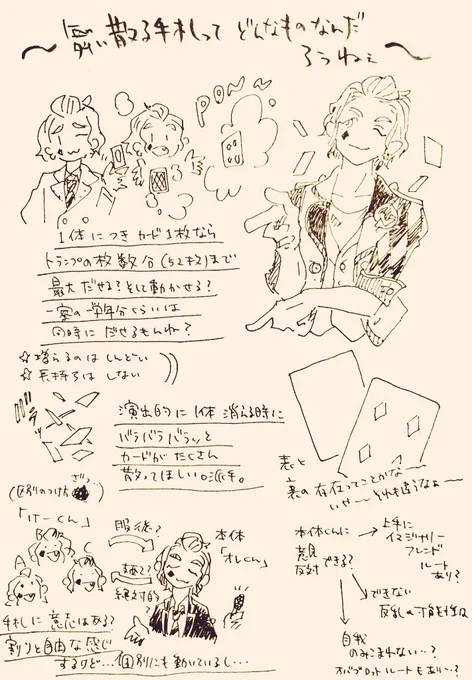 〜 舞い散る手札って どんなものなんだ
ろうねぇ 〜
pon〜
1体につき カード1枚なら
トランプの枚数分(52枚)まで
最大だせる?そして動かせる?
一寮の一学年分くらいは
同時にだせるもんね?
☆増えるのはしんどい
☆長持ちはしない
演出的に1体消える時に
バラバラバラッと
カードがたくさん
散ってほしい。派手。
表と
裏の存在ってことかな〜
いせ〜それも違うなぁ〜
(区別のつけ方
「けーくん」
A
B
C
服従?
絶対的
?
本体
「オレくん」
手札に意志はある?
割りと自由な感じ
するけど…個別にも動いているし…
本体くんに
意見
反対できる?
上手に
イマジナリー
フレンド
ルート
あり?
できない
自我
のみこまれない…?
オバブロットルートもあり…?